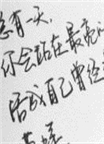 总有一天,
你会站在最亮
活成自己曾经